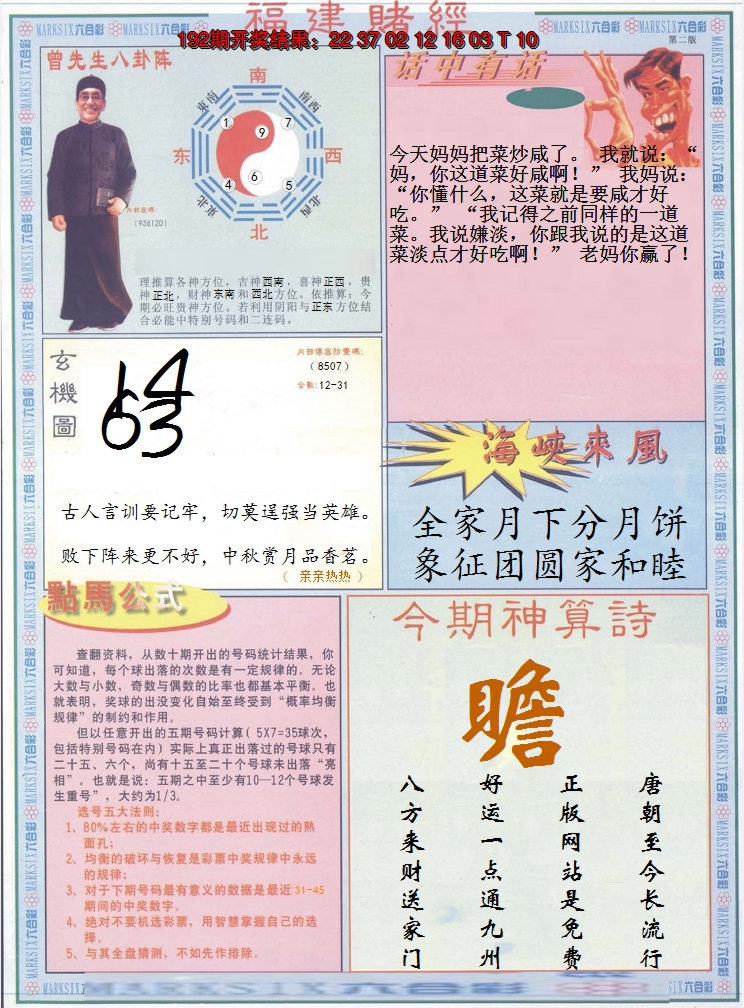 福建賭經
192期开奖结果：22 37 02 12 16 03 T 10
第二版
曾先生八卦阵
南
东南
南西
1
9
7
东
西
4
6
5
东北
北西
北
内部密碼:
(936120)
理推算各神方位，吉神西南，喜神正西，贵
神正北，财神东南和西北方位。依推算：今
期必旺贵神方位。若利用阴阳与正东方位结
合必能中特别号码和二连码。
话中有话
今天妈妈把菜炒咸了。 我就说：“
妈，你这道菜好咸啊！” 我妈说：
“你懂什么，这菜就是要咸才好
吃。” “我记得之前同样的一道
菜。我说嫌淡，你跟我说的是这道
菜淡点才好吃啊！” 老妈你赢了！
玄機圖
14
63
(8507)
合数:12-31
古人言训要记牢，切莫逞强当英雄。
败下阵来更不好，中秋赏月品香茗。
（ 亲亲热热 ）
海峽來風
全家月下分月饼
象征团圆家和睦
點馬公式
查翻资料，从数十期开出的号码统计结果，你
可知道，每个球出落的次数是有一定规律的。无论
大数与小数，奇数与偶数的比率也都基本平衡。也
就表明，奖球的出没变化自始至终受到“概率均衡
规律”的制约和作用。
但以任意开出的五期号码计算( 5X7=35球次，
包括特别号码在内) 实际上真正出落过的号球只有
二十五、六个，尚有十五至二十个号球未出落“亮
相”。也就是说：五期之中至少有10—12个号球发
生重号”，大约为1/3。
选号五大法则：
1、80%左右的中奖数字都是最近出现过的熟
面孔；
2、均衡的破坏与恢复是彩票中奖规律中永远
的规律；
3、对于下期号码最有意义的数据是最近31-45
期间的中奖数字。
4、绝对不要机选彩票，用智慧掌握自己的选
择。
5、与其全盘猜测，不如先作排除。
今期神算詩
瞻
唐朝至今长流行
正版网站是免费
好运一点通九州
八方来财送家门
MARKSIX六合彩